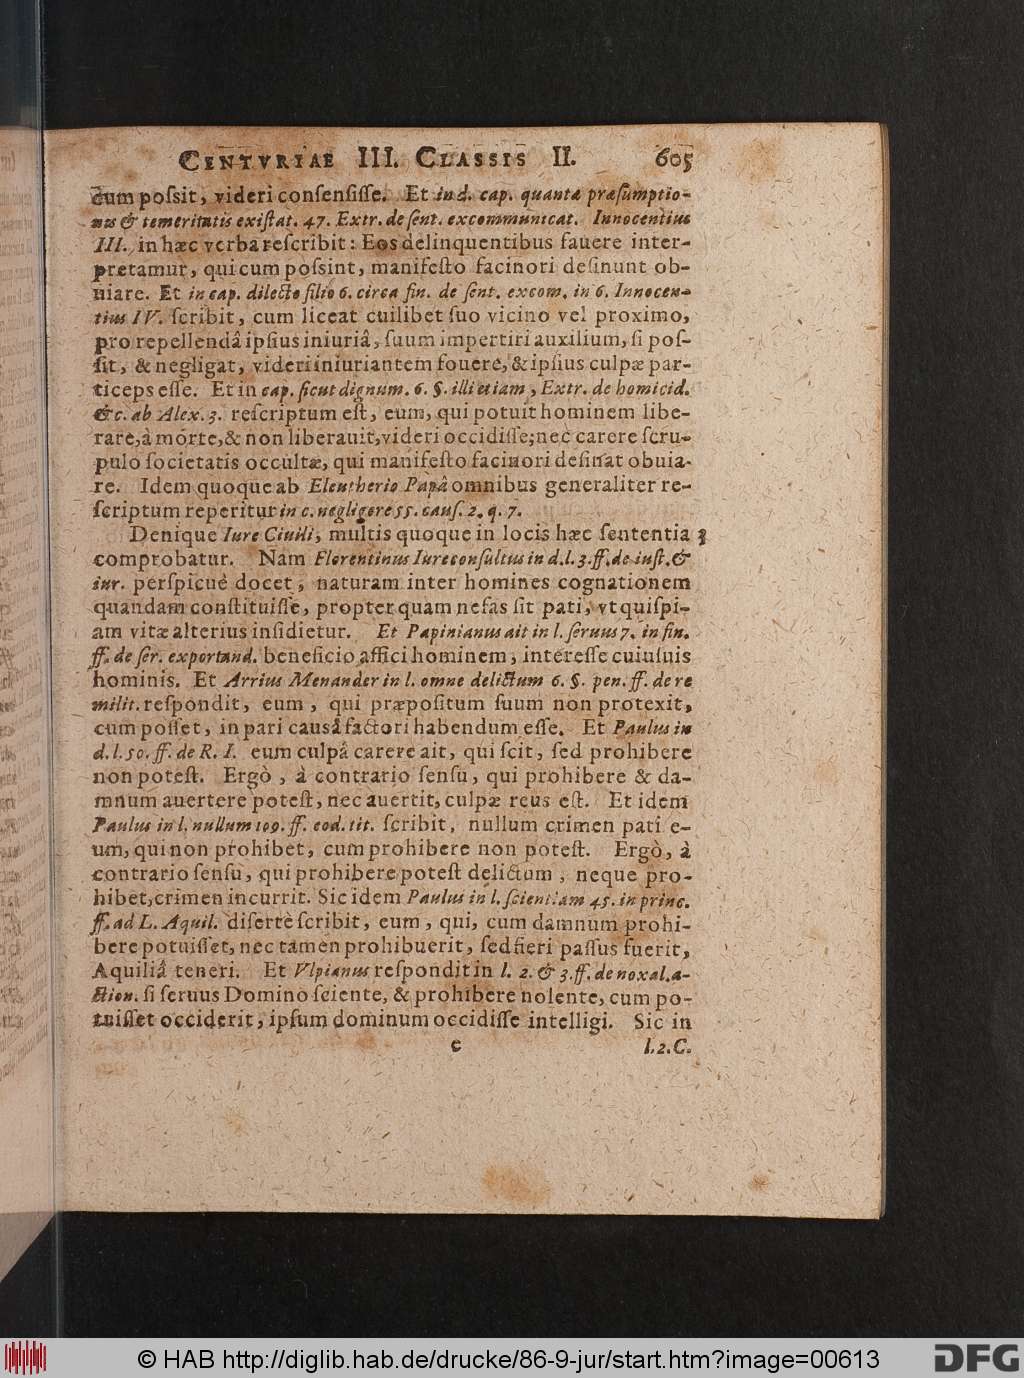 CENTVRIAE III. CLASSIS II. 605
cum poſsit, videri conſenſiſſe. Et in d. cap. quantæ præſumptio-
nis & temeritatis exiſtat. 47. Extr. de ſent. excommunicat. Innocentius
III. in hæc verba reſcribit: Eos delinquentibus fauere inter-
pretamur, qui cum poſsint, manifeſto facinori deſinunt ob-
uiare. Et in cap. dilecto filio 6. circa fin. de ſent. excom. in 6. Innocen-
tius IV. ſcribit, cum liceat cuilibet ſuo vicino vel proximo,
pro repellendâ ipſius iniuriâ, ſuum impertiri auxilium, ſi poſ-
ſit, & negligat, videri iniuriantem fouere, & ipſius culpæ par-
ticeps eſſe. Et in cap. ſicut dignum. 6. §. illi etiam, Extr. de homicid.
&c. ab Alex. 3. reſcriptum eſt, eum, qui potuit hominem libe-
rare, à morte, & non liberauit, videri occidiſſe; nec carere ſcru-
pulo ſocietatis occultæ, qui manifeſto facinori deſinat obuia-
re. Idem quoque ab Eleutherio Papâ omnibus generaliter re-
ſcriptum reperitur in c. negligere 55. cauſ. 2. q. 7.
Denique Iure Ciuili, multis quoque in locis hæc ſententia
comprobatur. Nam Florentinus Iureconſultus in d. l. 3. ff. de iuſt. &
iur. perſpicuè docet, naturam inter homines cognationem
quandam conſtituiſſe, propter quam nefas ſit pati, vt quiſpi-
am vitæ alterius inſidietur. Et Papinianus ait in l. ſeruus 7. in fin.
ff. de ſer. exportand. beneficio affici hominem, intereſſe cuiuſuis
hominis. Et Arrius Menander in l. omne delictum 6. §. pen. ff. de re
milit. reſpondit, eum, qui præpoſitum ſuum non protexit,
cum poſſet, in pari causâ factori habendum eſſe. Et Paulus in
d. l. 50. ff. de R. I. eum culpâ carere ait, qui ſcit, ſed prohibere
non poteſt. Ergò, à contrario ſenſu, qui prohibere & da-
mnum auertere poteſt, nec auertit, culpæ reus eſt. Et idem
Paulus in l. nullum 109. ff. eod. tit. ſcribit, nullum crimen pati e-
um, qui non prohibet, cum prohibere non poteſt. Ergò, à
contrario ſenſu, qui prohibere poteſt delictum, neque pro-
hibet, crimen incurrit. Sic idem Paulus in l. ſcientiam 45. in princ.
ff. ad L. Aquil. diſertè ſcribit, eum, qui, cum damnum prohi-
bere potuiſſet, nec tamen prohibuerit, ſed fieri paſſus fuerit,
Aquiliâ teneri. Et Vlpianus reſpondit in l. 2. & 3. ff. de noxal. a-
ction. ſi ſeruus Domino ſciente, & prohibere nolente, cum po-
tuiſſet occiderit, ipſum dominum occidiſſe intelligi. Sic in
e l. 2. C.
© HAB http://diglib.hab.de/drucke/86-9-jur/start.htm?image=00613
DFG